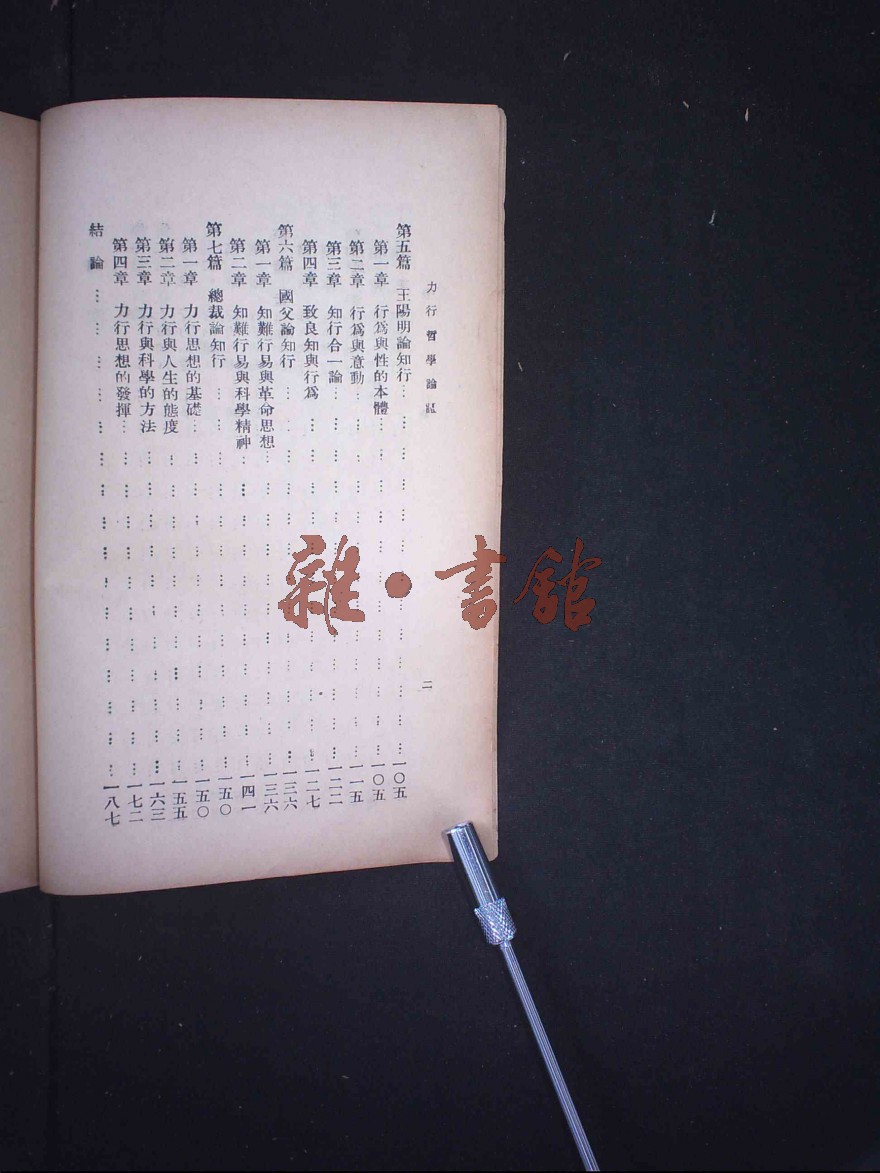 力行哲學論
二
第五篇 王陽明論知行………一〇五
第一章 行爲與性的本體………一〇五
第二章 行爲與意動………一一五
第三章 知行合一論………一二二
第四章 致良知與行爲………一二七
第六篇 國父論知行………一三六
第一章 知難行易與革命思想………一三六
第二章 知難行易與科學精神………一四一
第七篇 總裁論知行………一五〇
第一章 力行思想的基礎………一五〇
第二章 力行與人生的態度………一五五
第三章 力行與科學的方法………一六三
第四章 力行思想的發揮………一七二
結論………一八七
雜·書館